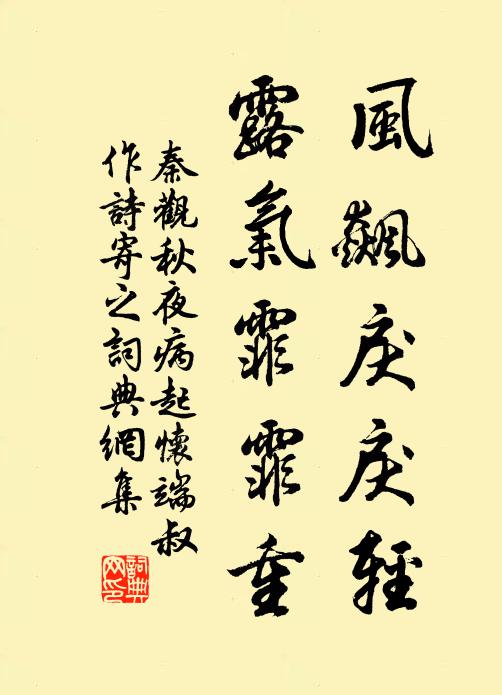 風飆戾戾輕
露氣霏霏重
秦觀秋夜病起懷端叔
作詩寄之詞典網集
詞典
网印